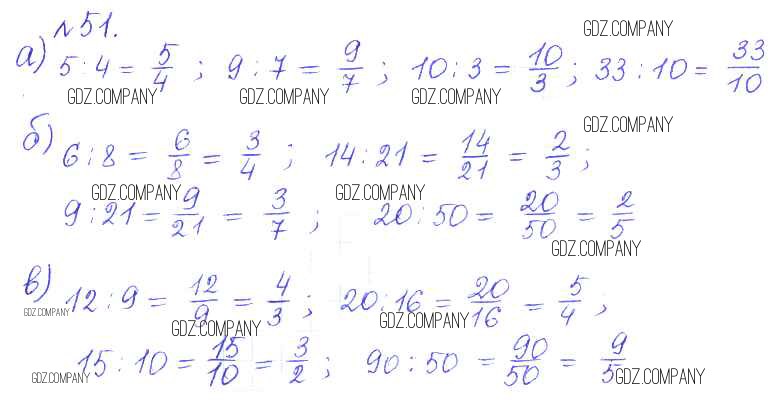 №51.
GDZ.COMPANY
а) 5 : 4 = 5/4 ; 9 : 7 = 9/7 ; 10 : 3 = 10/3 ; 33 : 10 = 33/10
GDZ.COMPANY GDZ.COMPANY GDZ.COMPANY
GDZ.COMPANY
б) 6 : 8 = 6/8 = 3/4 ; 14 : 21 = 14/21 = 2/3 ;
GDZ.COMPANY GDZ.COMPANY
9 : 21 = 9/21 = 3/7 ; 20 : 50 = 20/50 = 2/5
GDZ.COMPANY
в) 12 : 9 = 12/9 = 4/3 ; 20 : 16 = 20/16 = 5/4 ;
GDZ.COMPANY GDZ.COMPANY GDZ.COMPANY
15 : 10 = 15/10 = 3/2 ; 90 : 50 = 90/50 = 9/5
GDZ.COMPANY GDZ.COMPANY